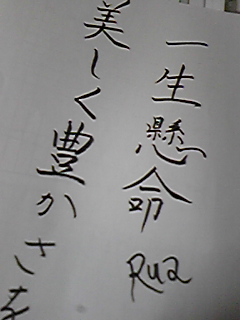 一生懸命 Rua
美しく豊かさを